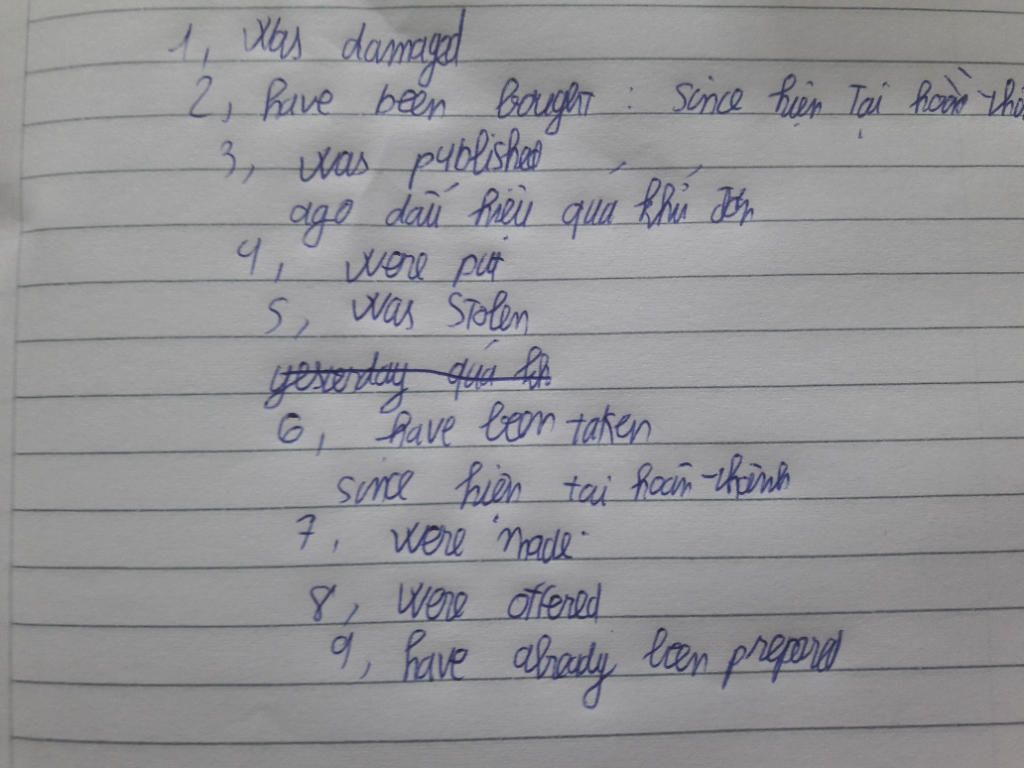 1, was damaged
2, have been bought : since hiện tại hoàn thà
3, was published
ago dấu hiệu quá khứ đơn
4, were put
5, was stolen
yesterday quá kh
6, have been taken
since hiện tại hoàn thành
7, were made
8, were offered
9, have already been prepared